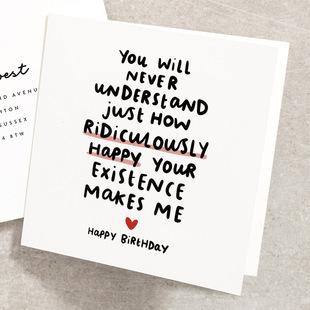 YOU WILL
NEVER
UNDERSTAND
JUST HOW
RiDiCULOUSLY
HAPPY YOUR
EXiSTENCE
MAKES ME
HAPPY BiRTHDAY
est
D AVENU
TON
SUSSEX
4 8TW